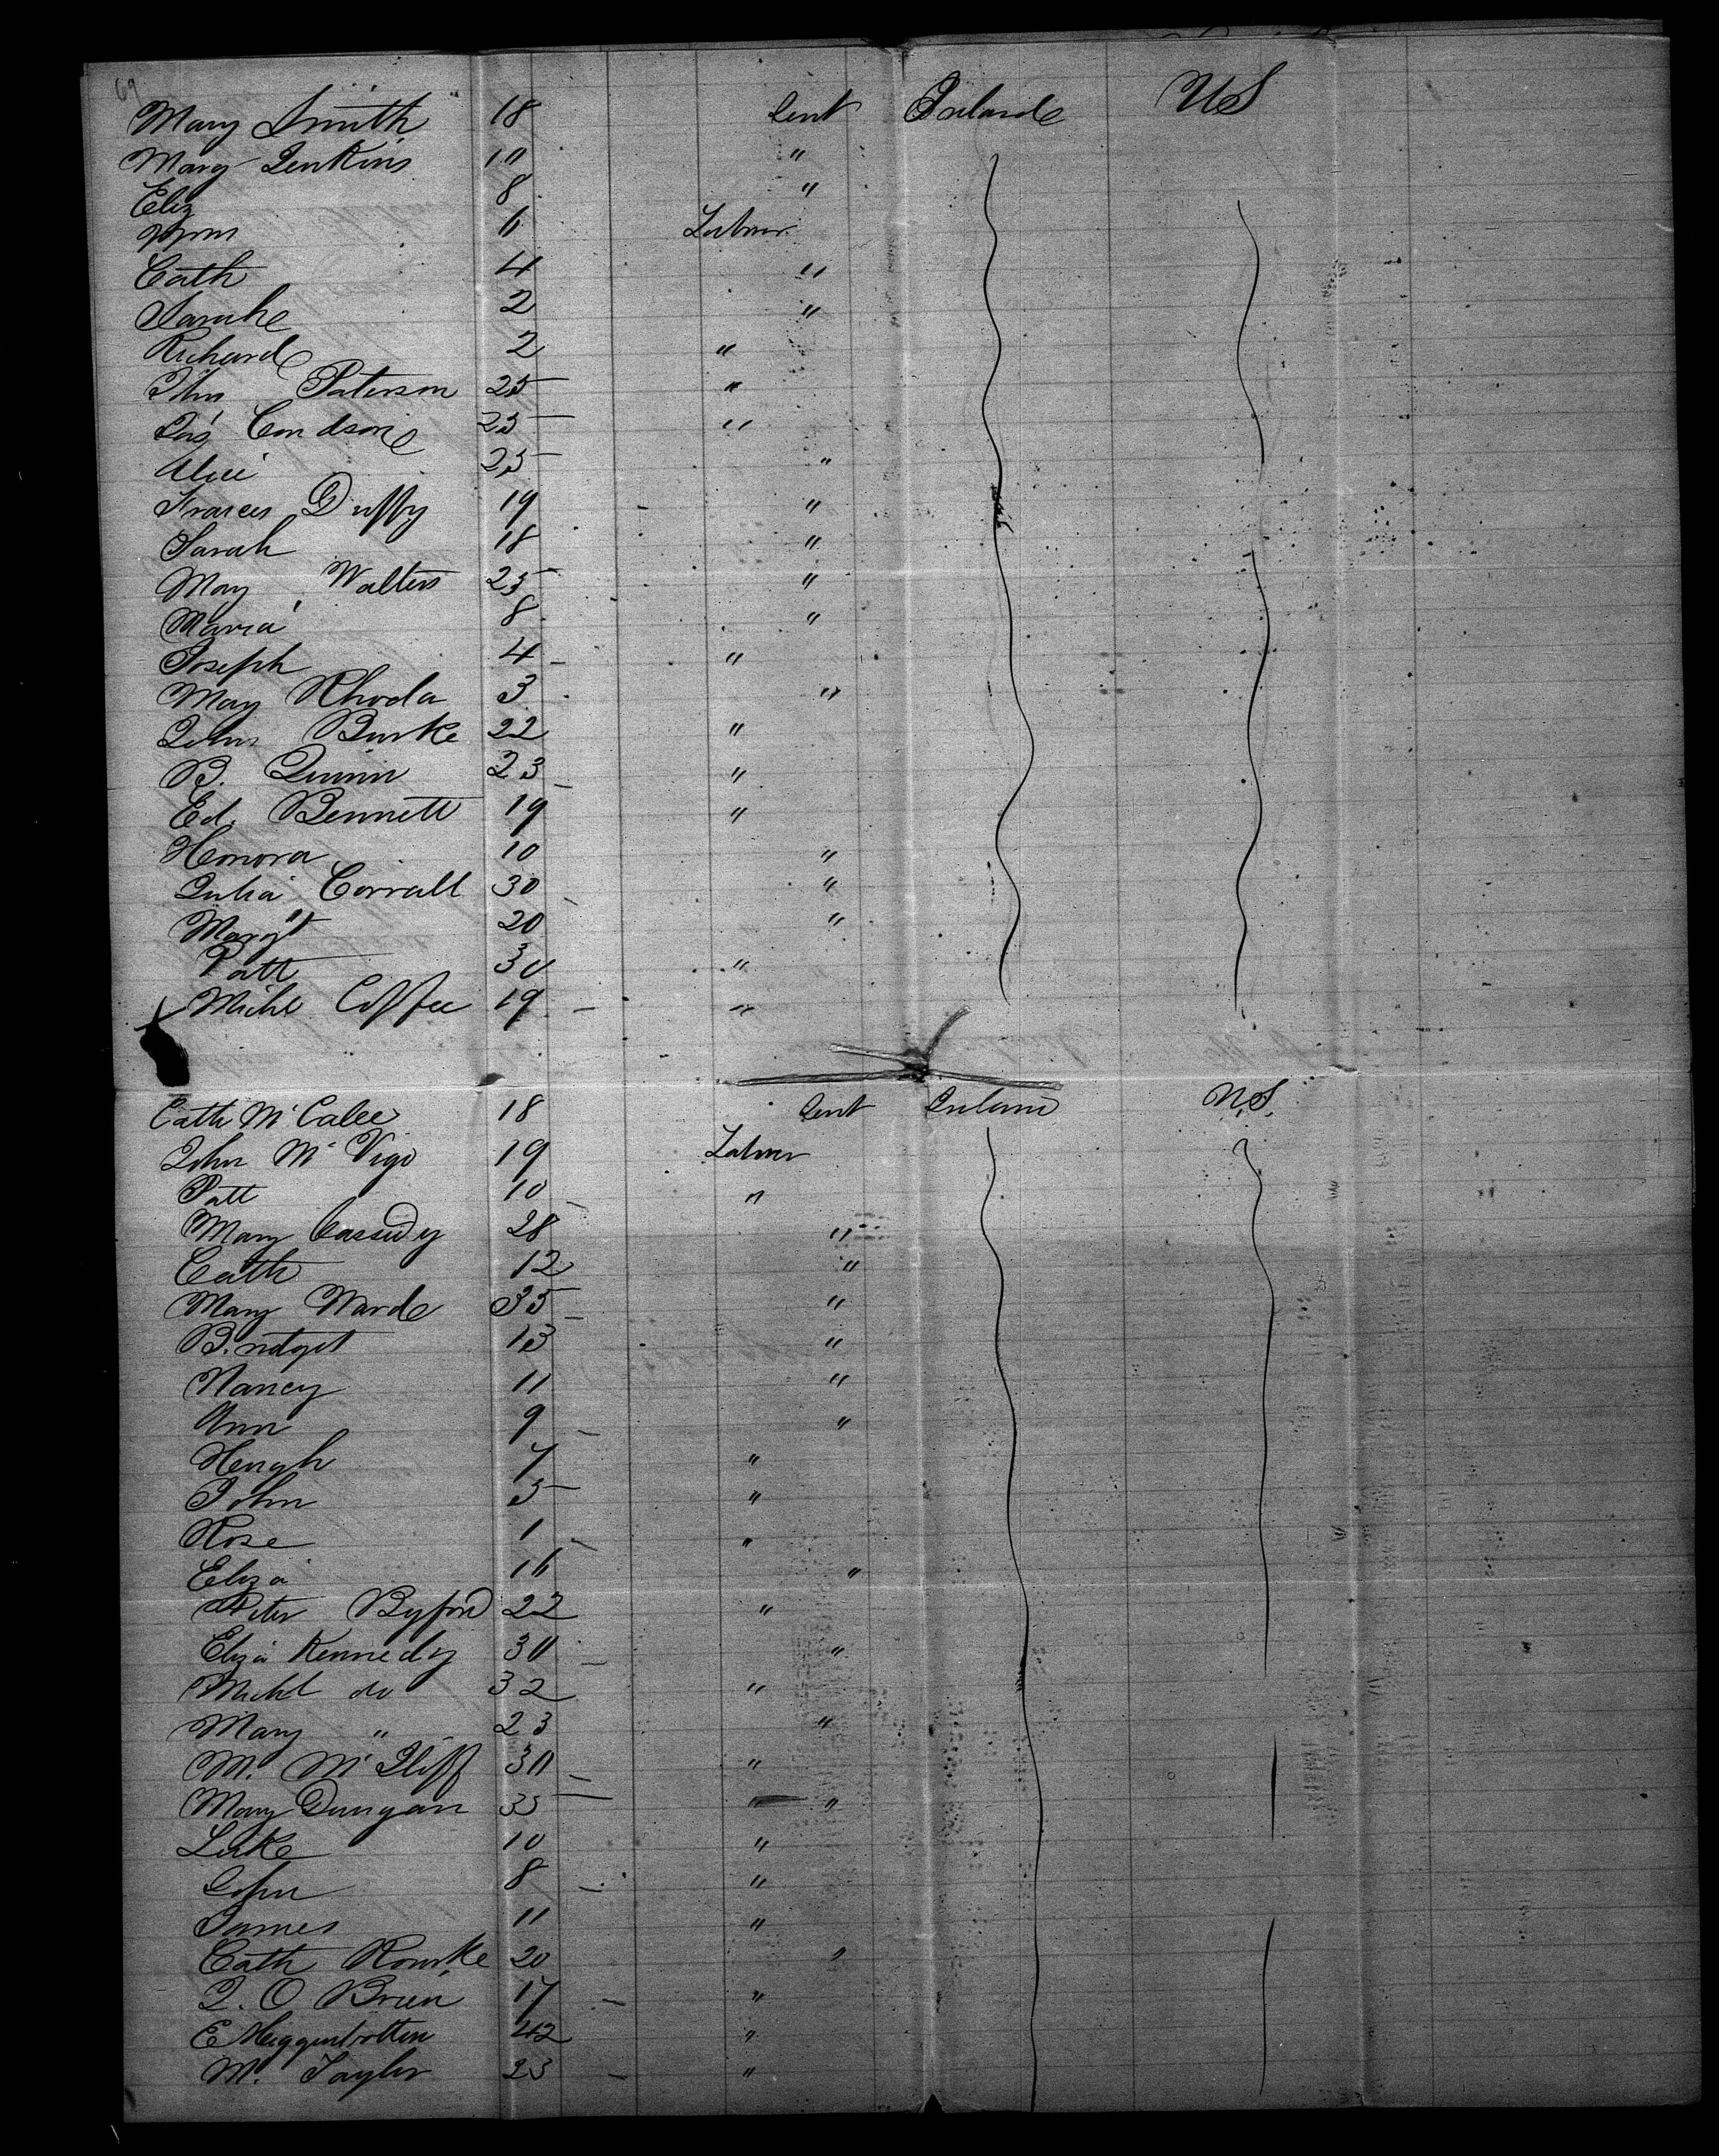 69
Mary Smith 18 Sert Ireland US
Mary Jenkins 10 "
Eliz 8 "
Wm 6 Labour
Cath 4 "
Sarah 2 "
Richard 2 "
John Paterson 25 "
Jas 25 "
Alice 25 "
Frances Duffy 19 "
Sarah 18 "
Mary Walters 25 "
Maria 8 "
Joseph 4 "
Mary Rhoda 3 "
John Burke 22 "
B. Quinn 23 "
Ed. Bennett 19 "
Honora 10 "
Julia Corrall 30 "
Margt 20 "
Patt 30 "
Michl Coffee 19 "
Cath McCalee 18 Sert Ireland U.S.
John McVigo 19 Labour
Patt 10 "
Mary Cassidy 28 "
Cath 12 "
Mary Ward 35 "
Bridget 13 "
Nancy 11 "
Ann 9 "
Heugh 7 "
John 5 "
Rose 1 "
Eliza 16 "
Peter Byford 22 "
Eliza Kennedy 30 "
Michl do 32 "
Mary " 23 "
M. 30 "
Mary Dungan 35 " "
Luke 10 "
John 8 "
James 11 "
Cath Rourke 20 "
J. O Brien 17 "
E Higginbottom 42 "
M. Taylor 23 "